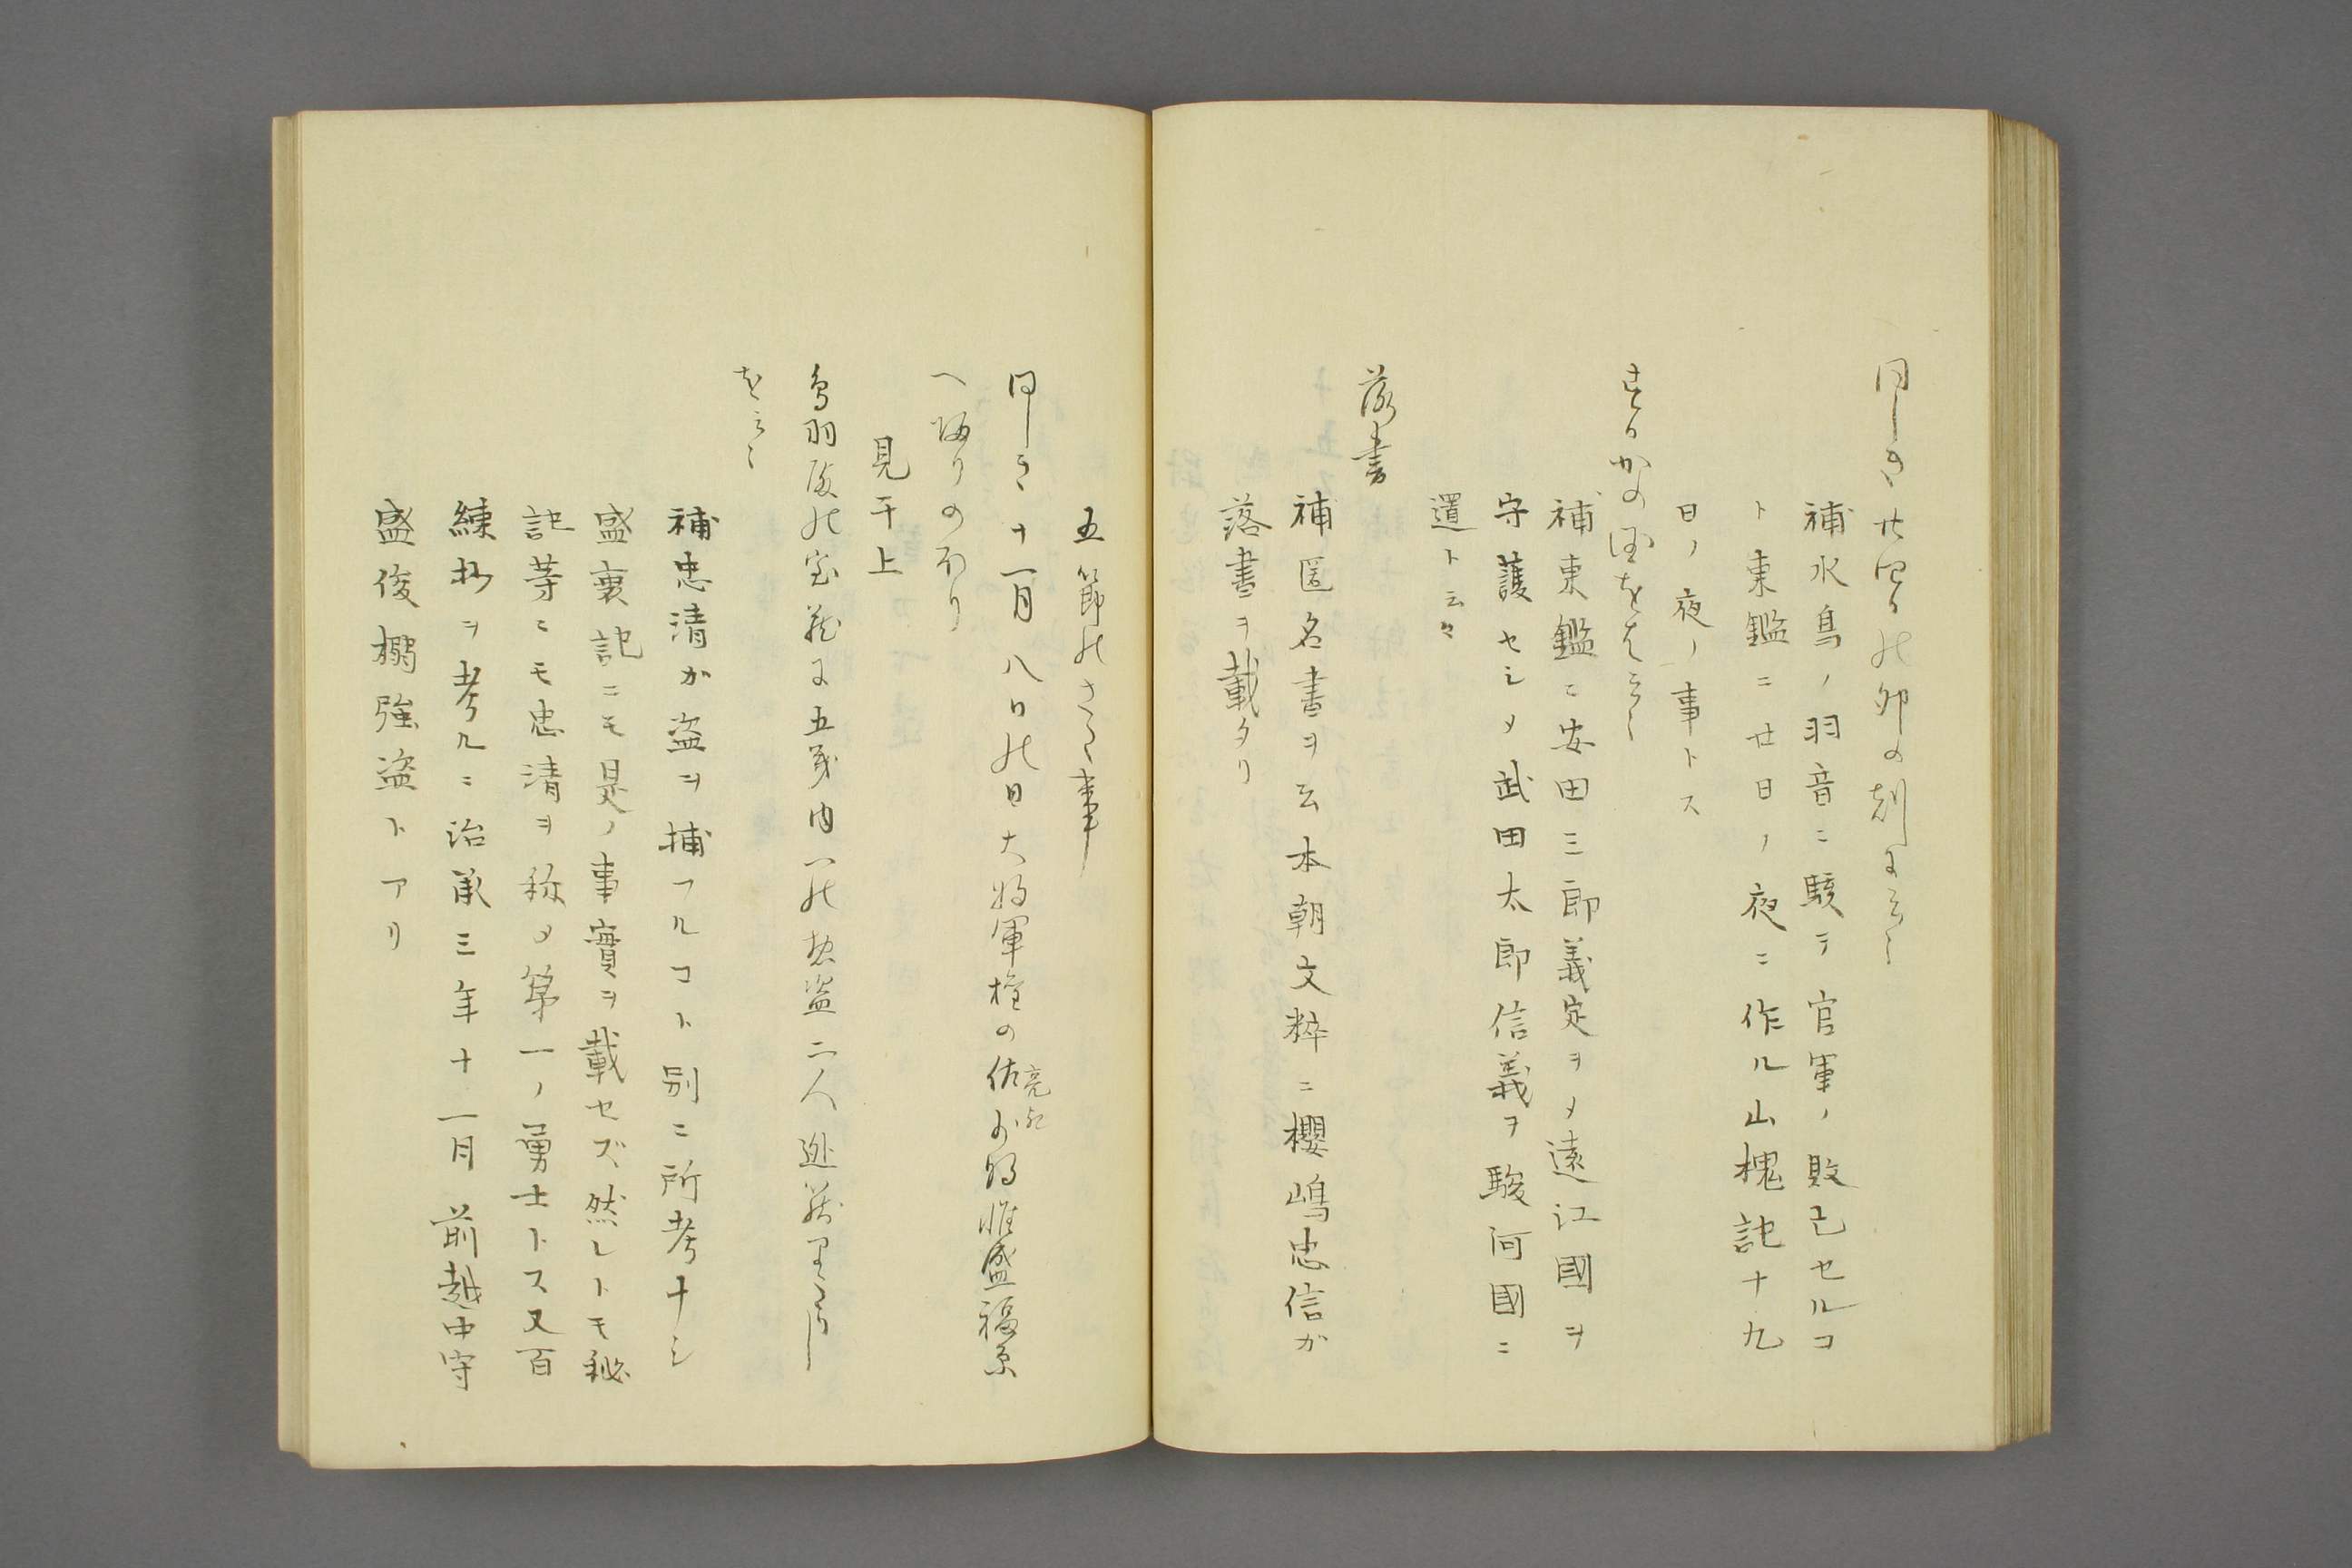 同しき廿四日の卯の刻に云〻
補水鳥ノ羽音ニ駭テ官軍ノ敗已セルコ
ト東鑑ニ廿日ノ夜ニ作ル山槐記十九
日ノ夜ノ事トス
するかの国をは云〻
補東鑑ニ安田三郎義定ヲメ遠江國ヲ
守護セシメ武田太郎信義ヲ駿河國ニ
還ト云々
落書
補匿名書ヲ云本朝文粹ニ櫻嶋忠信が
落書ヲ載タリ
五節のさた事
同しき十一月八日の日大将軍権の佐少将惟盛福原
へ帰りのほり
見于上
鳥羽殿の宝蔵に五畿内一の悪盗二人逃籠りたりし
を云〻
補忠清か盗ヲ捕フルコト別ニ所考ナシ
盛衰記ニモ是ノ事實ヲ載セズ然レトモ秘
記等ニモ忠清ヲ称メ第一ノ勇士トス又百
練抄ヲ考ルニ治承三年十一月前越中守
盛俊搦強盗トアリ